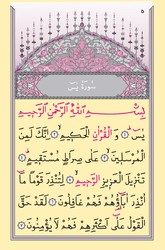 ٥
سورة يس
بسم الله الرحمن الرحيم
يس ﴿١﴾ والقرآن الحكيم ﴿٢﴾ إنك لمن
المرسلين ﴿٣﴾ على صراط مستقيم ﴿٤﴾
تنزيل العزيز الرحيم ﴿٥﴾ لتنذر قوما ما
أنذر آباؤهم فهم غافلون ﴿٦﴾ لقد حق
القول على أكثرهم فهم لا يؤمنون ﴿٧﴾